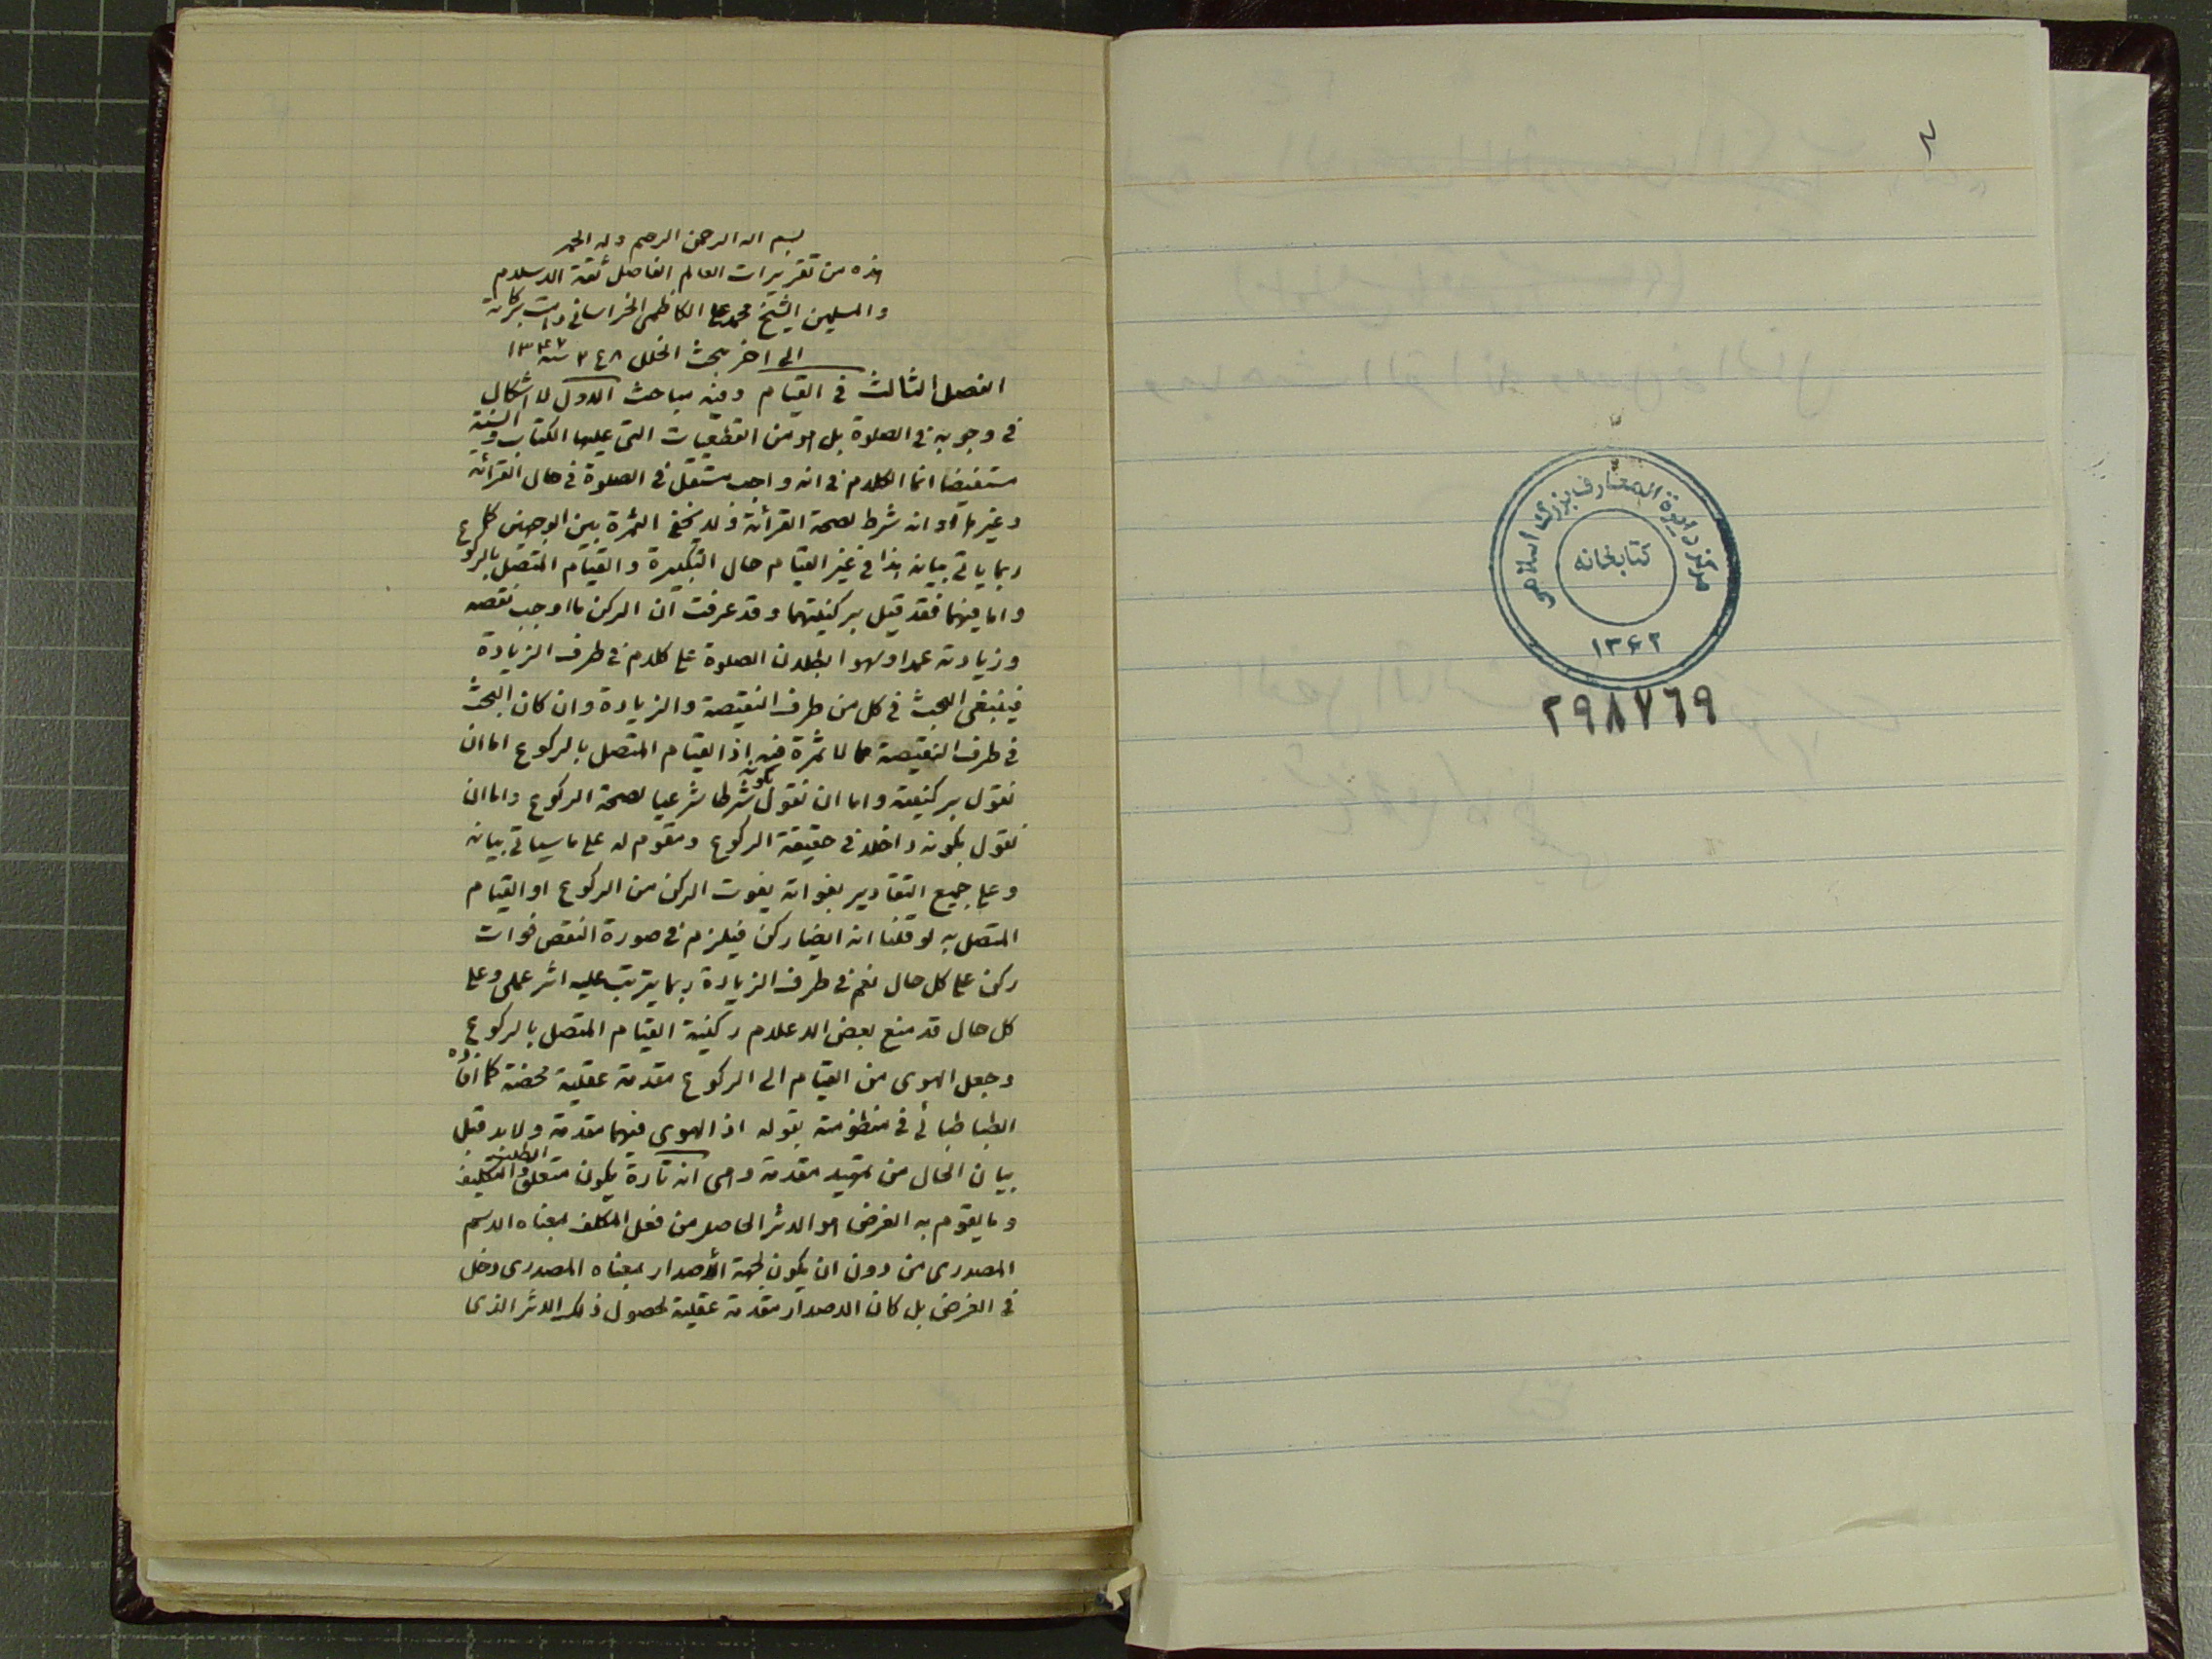 ٢
مرکز دایرة المعارف بزرگ اسلامی
کتابخانه
۱۳۶۲
٢٩٨٧٦٩
بسم الله الرحمن الرحیم وله الحمد
هذه من تقریرات العالم الفاضل ثقة الاسلام
والمسلمین الشیخ محمد علی الکاظمی الخراسانی دامت برکاته
الی اخر بحث الخلل
الفصل الثالث فی القیام وفیه مباحث الاول لا اشکال
فی وجوبه فی الصلوة بل هو من القطعیات التی علیها الکتاب والسنة
مستفیضا انما الکلام فی انه واجب مستقل فی الصلوة فی حال القرائة
وغیرها او انه شرط لصحة القرائة ولا یخفی الثمرة بین الوجهین کما
ربما یاتی بیانه هذا فی غیر القیام حال التکبیرة والقیام المتصل بالرکوع
واما فیهما فقد قیل برکنیتهما وقد عرفت ان الرکن ما اوجب نقصه
وزیادته عمدا وسهوا بطلان الصلوة علی کلام فی طرف الزیادة
فینبغی البحث فی کل من طرف النقیصة والزیادة وان کان البحث
فی طرف النقیصة مما لا ثمرة فیه اذ القیام المتصل بالرکوع اما ان
نقول برکنیته واما ان نقول بکونه شرطا شرعیا لصحة الرکوع واما ان
نقول بکونه داخلا فی حقیقة الرکوع ومقوم له علی ما سیاتی بیانه
وعلی جمیع التقادیر بفواته یفوت الرکن من الرکوع او القیام
المتصل به لو قلنا انه ایضا رکن فیلزم فی صورة النقص فوات
رکن علی کل حال نعم فی طرف الزیادة ربما یترتب علیه اثر عملی وعلی
کل حال قد منع بعض الاعلام رکنیة القیام المتصل بالرکوع
وجعل الهوی من القیام الی الرکوع مقدمة عقلیة محضة کما افاده
الطباطبائی فی منظومته بقوله اذ الهوی فیهما مقدمة ولابد قبل
بیان الحال من تمهید مقدمة وهی انه تارة یکون متعلق الطلب والتکلیف
وما یقوم به الغرض هو الاثر الحاصل من فعل المکلف بمعناه الاسم
المصدری من دون ان یکون لجهة الاصدار بمعناه المصدری دخل
فی الغرض بل کان الاصدار مقدمة عقلیة لحصول ذلک الاثر الذی